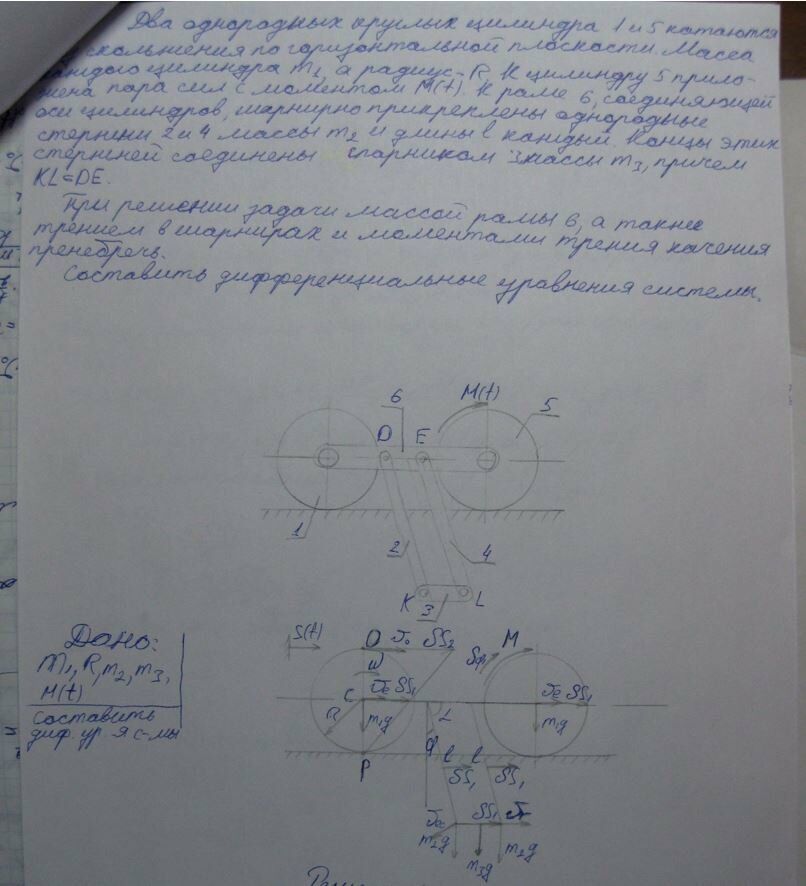 Два однородных круглых цилиндра 1 и 5 катаются
скольжения по горизонтальной плоскости Масса
каждого цилиндра m1, а радиус - R. К цилиндру 5 прило-
жена пара сил с моментом M(t). К раме 6, соединяющей
оси цилиндров, шарнирно прикреплены однородные
стержни 2 и 4 массы m2 и длины l каждый. Концы этих
стержней соединены спарником 3 массы m3, причем
KL=DE.
При решении задачи массой рамы 6, а также
трением в шарнирах и моментами трения качения
пренебречь.
Составить дифференциальные уравнения системы.
6 M(t) 5
D E
1 2 4
K 3 L
Дано:
m1, R, m2, m3,
M(t)
составить
диф. ур-я с-мы
S(t) O δS2 M
ω δφ
C δS1 δS1
R m1g L m1g
φ
P l l
δS1 δS1
δS1
m2g m3g m2g